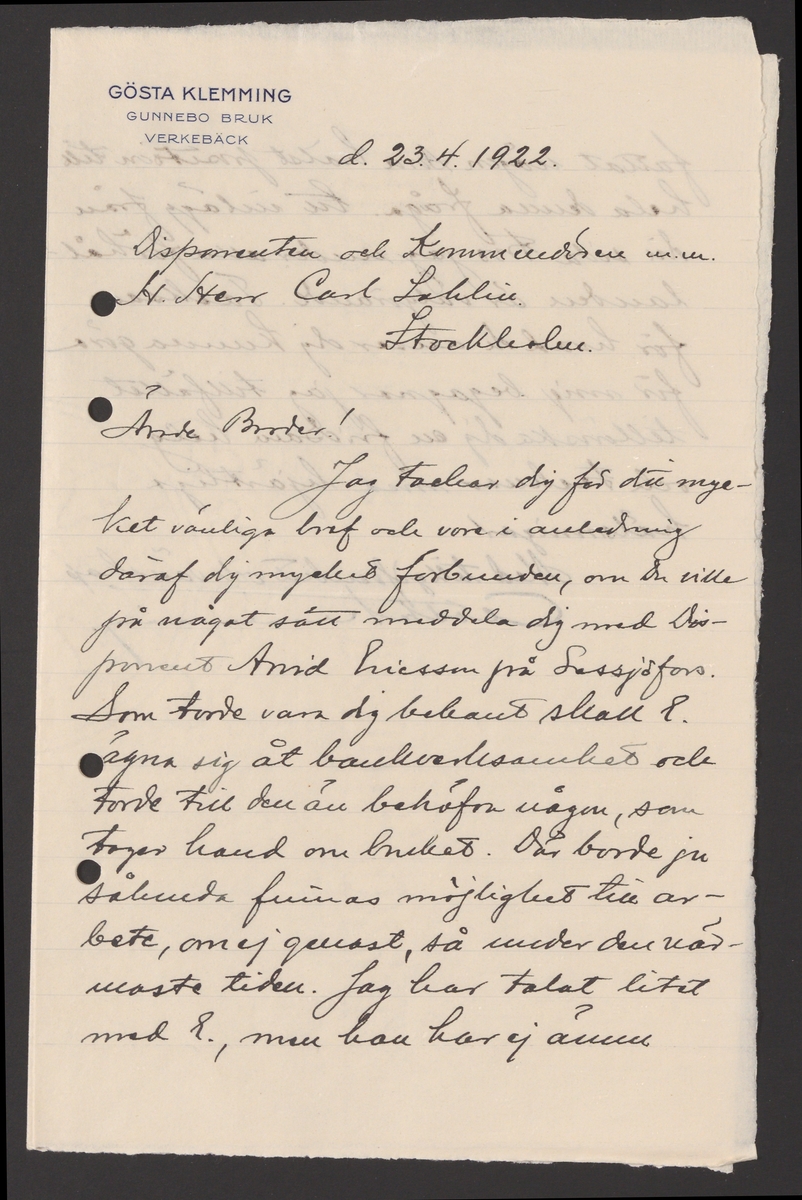 GÖSTA KLEMMING
GUNNEBO BRUK
VERKEBÄCK
d. 23.4. 1922.
Disponenten och Kommendören m.m.
H. Herr Carl Sahlin.
Stockholm.
Ärade Broder!
Jag tackar dig för ditt myc-
ket vänliga bref och vore i anledning
däraf dig mycket förbunden, om Du ville
på något sätt meddela dig med Dis-
ponent Arvid Ericsson på Lessjöfors.
Som torde vara dig bekant skall E.
ägna sig åt bankverksamhet och
torde till den än behöfva någon, som
tager hand om bruket. Där borde ju
sålunda finnas möjlighet till ar-
bete, om ej genast, så under den när-
maste tiden. Jag har talat litet
med E., men han har ej ännu